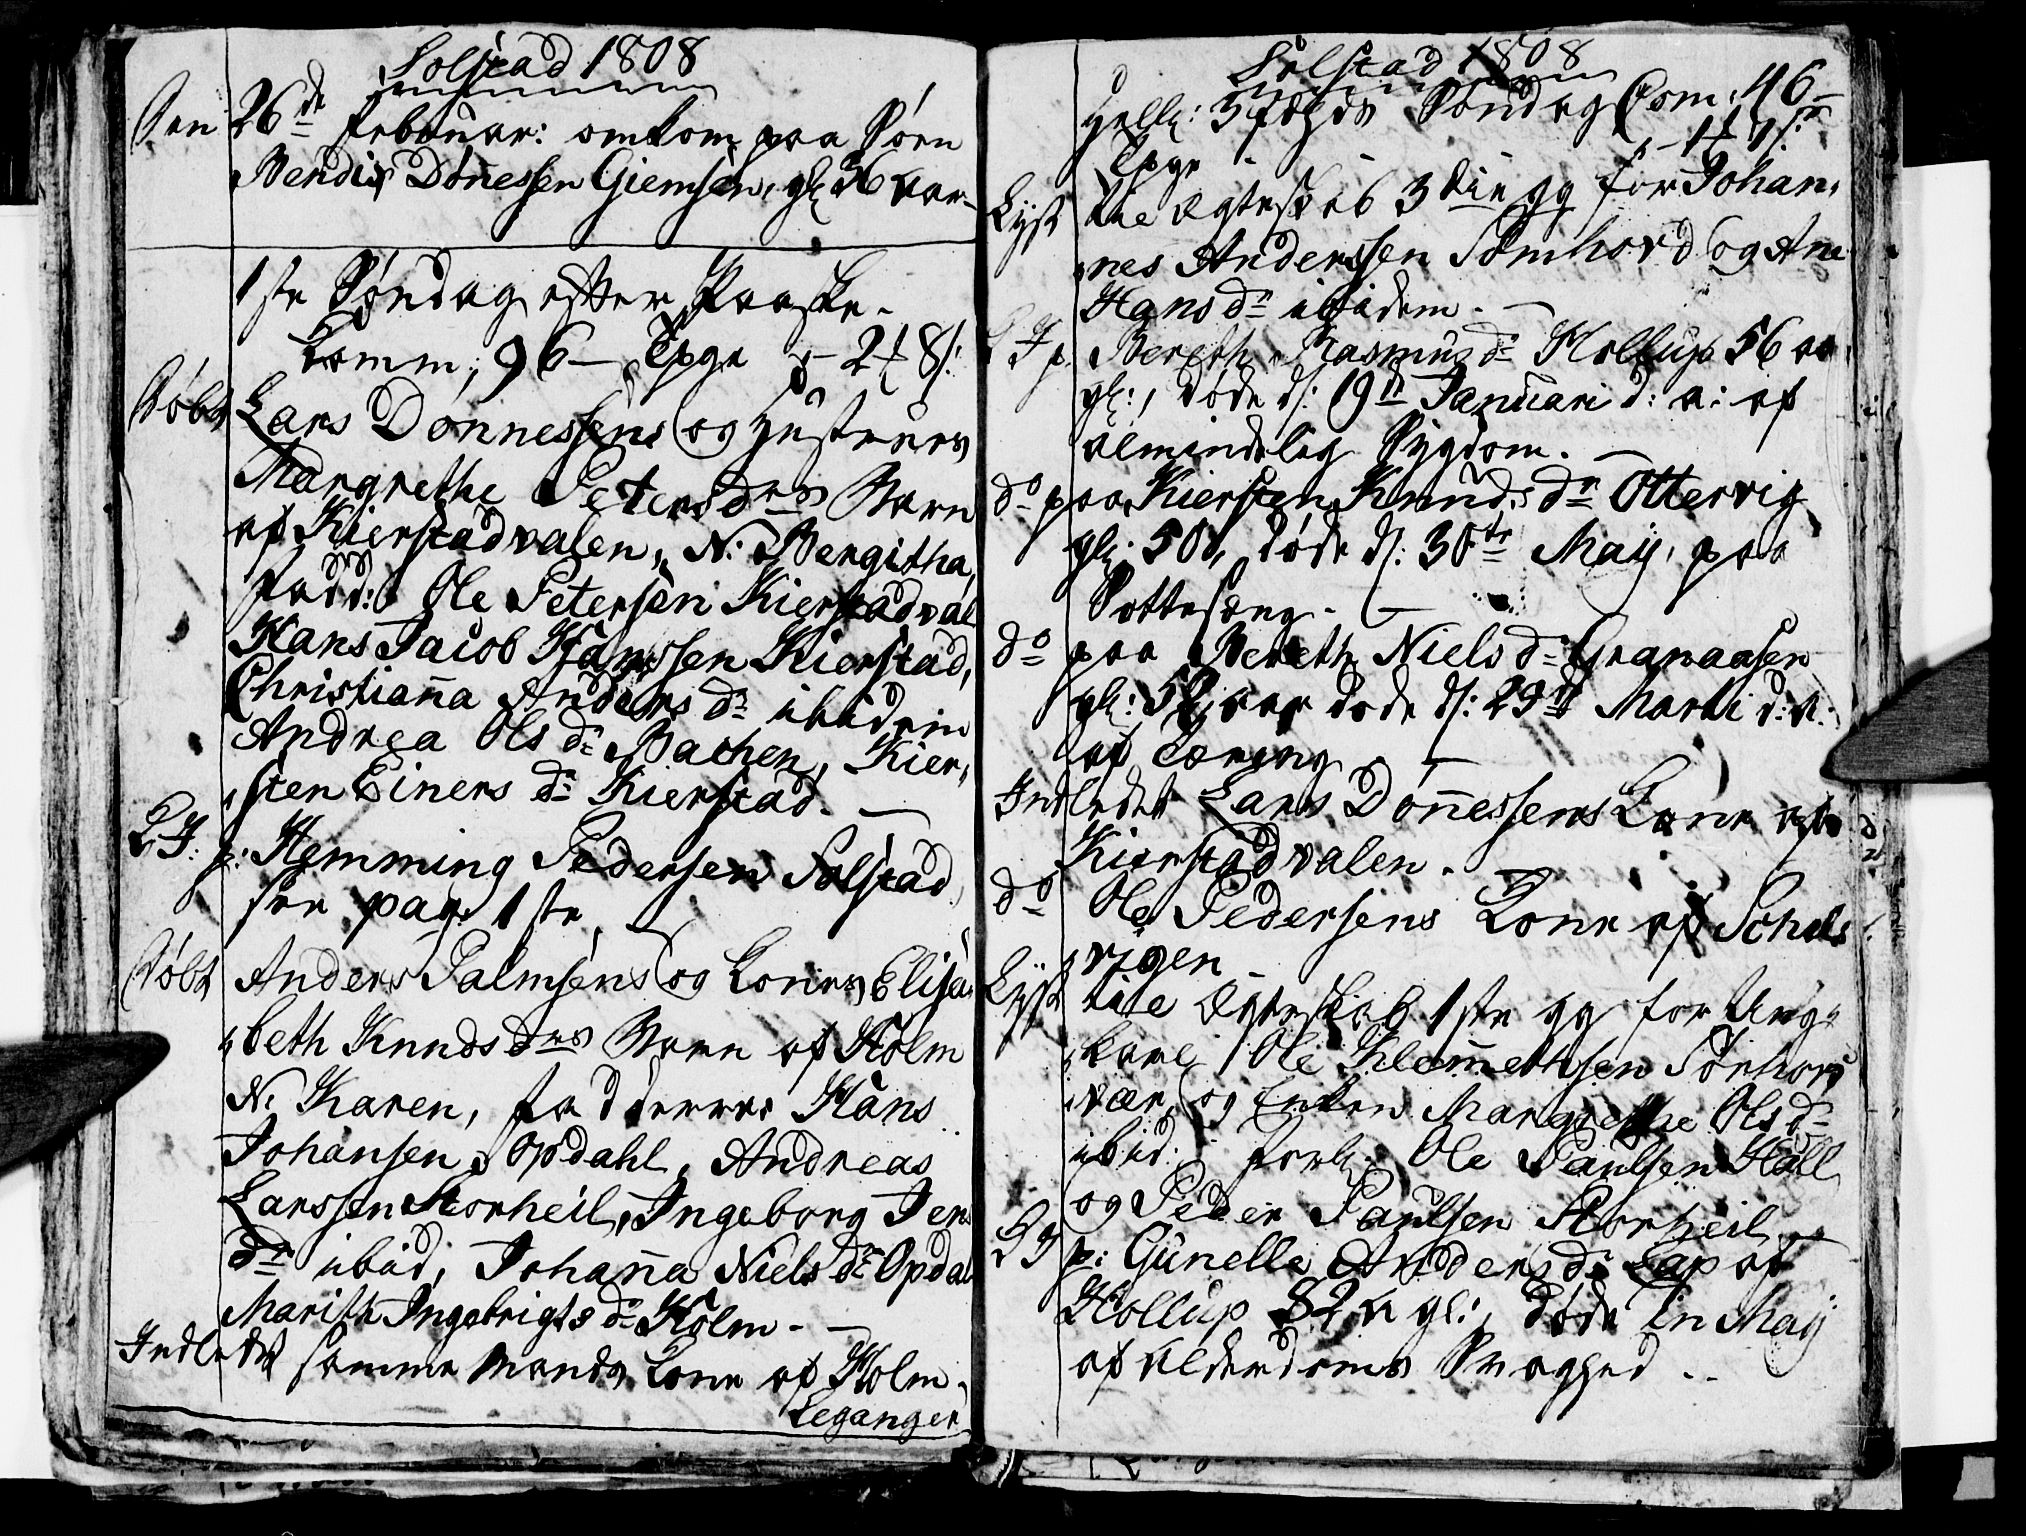 Solstad 1808
Den 26de Februar: omkom paa Søen
Bendix Dønessen Giemsøen, gl: 36 aar
1ste Søndag efter Paaske.
Comm: 96 – Tpge – 2 8 s:
Døbt Lars Dønnessens og Hustrues
Margrethe Petersdrs Barn
af Kierstadvalen, N: Bergitha,
Fadd: Ole Petersen Kierstadval
Hans Jacob Hanssen Kierstad,
Christiana Anders dr ibidem
Andrea Ols dr Bachen, Kier,
sten Einers dr Kierstad. –
L. J. p: Hemming Pedersen Solstad
see pag. 1ste
Døbt Anders Palmsens og Kones Elisa,
beth Knudsdrs Barn af Holm
N. Karen, Fadderne Hans
Johansen Opdahl, Andreas
Larssen Storheil, Ingeborg Jens
dr ibid, Johana Niels dr Opdal
Marith Ingebrigts dr Holm. –
Indledt samme Mands Kone af Holm.
Leganger
Solstad 1808
Hell: 3 Søndag Com: 46 –
Tpge
Lyst til Ægteskab 3die gg for Johan,
nes Anderssen Sømhovd og Ane
Hans dr ibidem. –
J p. Bereth Rasmus dr Hollup 56 aa
gl:, døde d: 19de Januari d: a: af
almindelig Sygdom. –
do paa Kiersten Knuds dr Ottervig
gl: 50, døde d: 30te Maij, paa
Sottesæng. –
do paa Bereth Niels dr Granaasen
gl: aar døde d: 29de Marti d: a:
af Tæring –
Indledet Lars Dønessens Kone af
Kierstadvalen.
do Ole Pedersens Kone af Schels
vigen –
Lyst til Ægteskab 1ste gg for Ung,
karl Ole Klemmethsen Torhors
vær, og Enken Margrethe Ols dr
ibid: Forl: Ole Paulsen Hall
og Peder Paulsen Storheil
p: Gunelle Anders dr Lap af
Hollup 82 a gl:, døde in Maij
af Alderdoms Svaghed ..